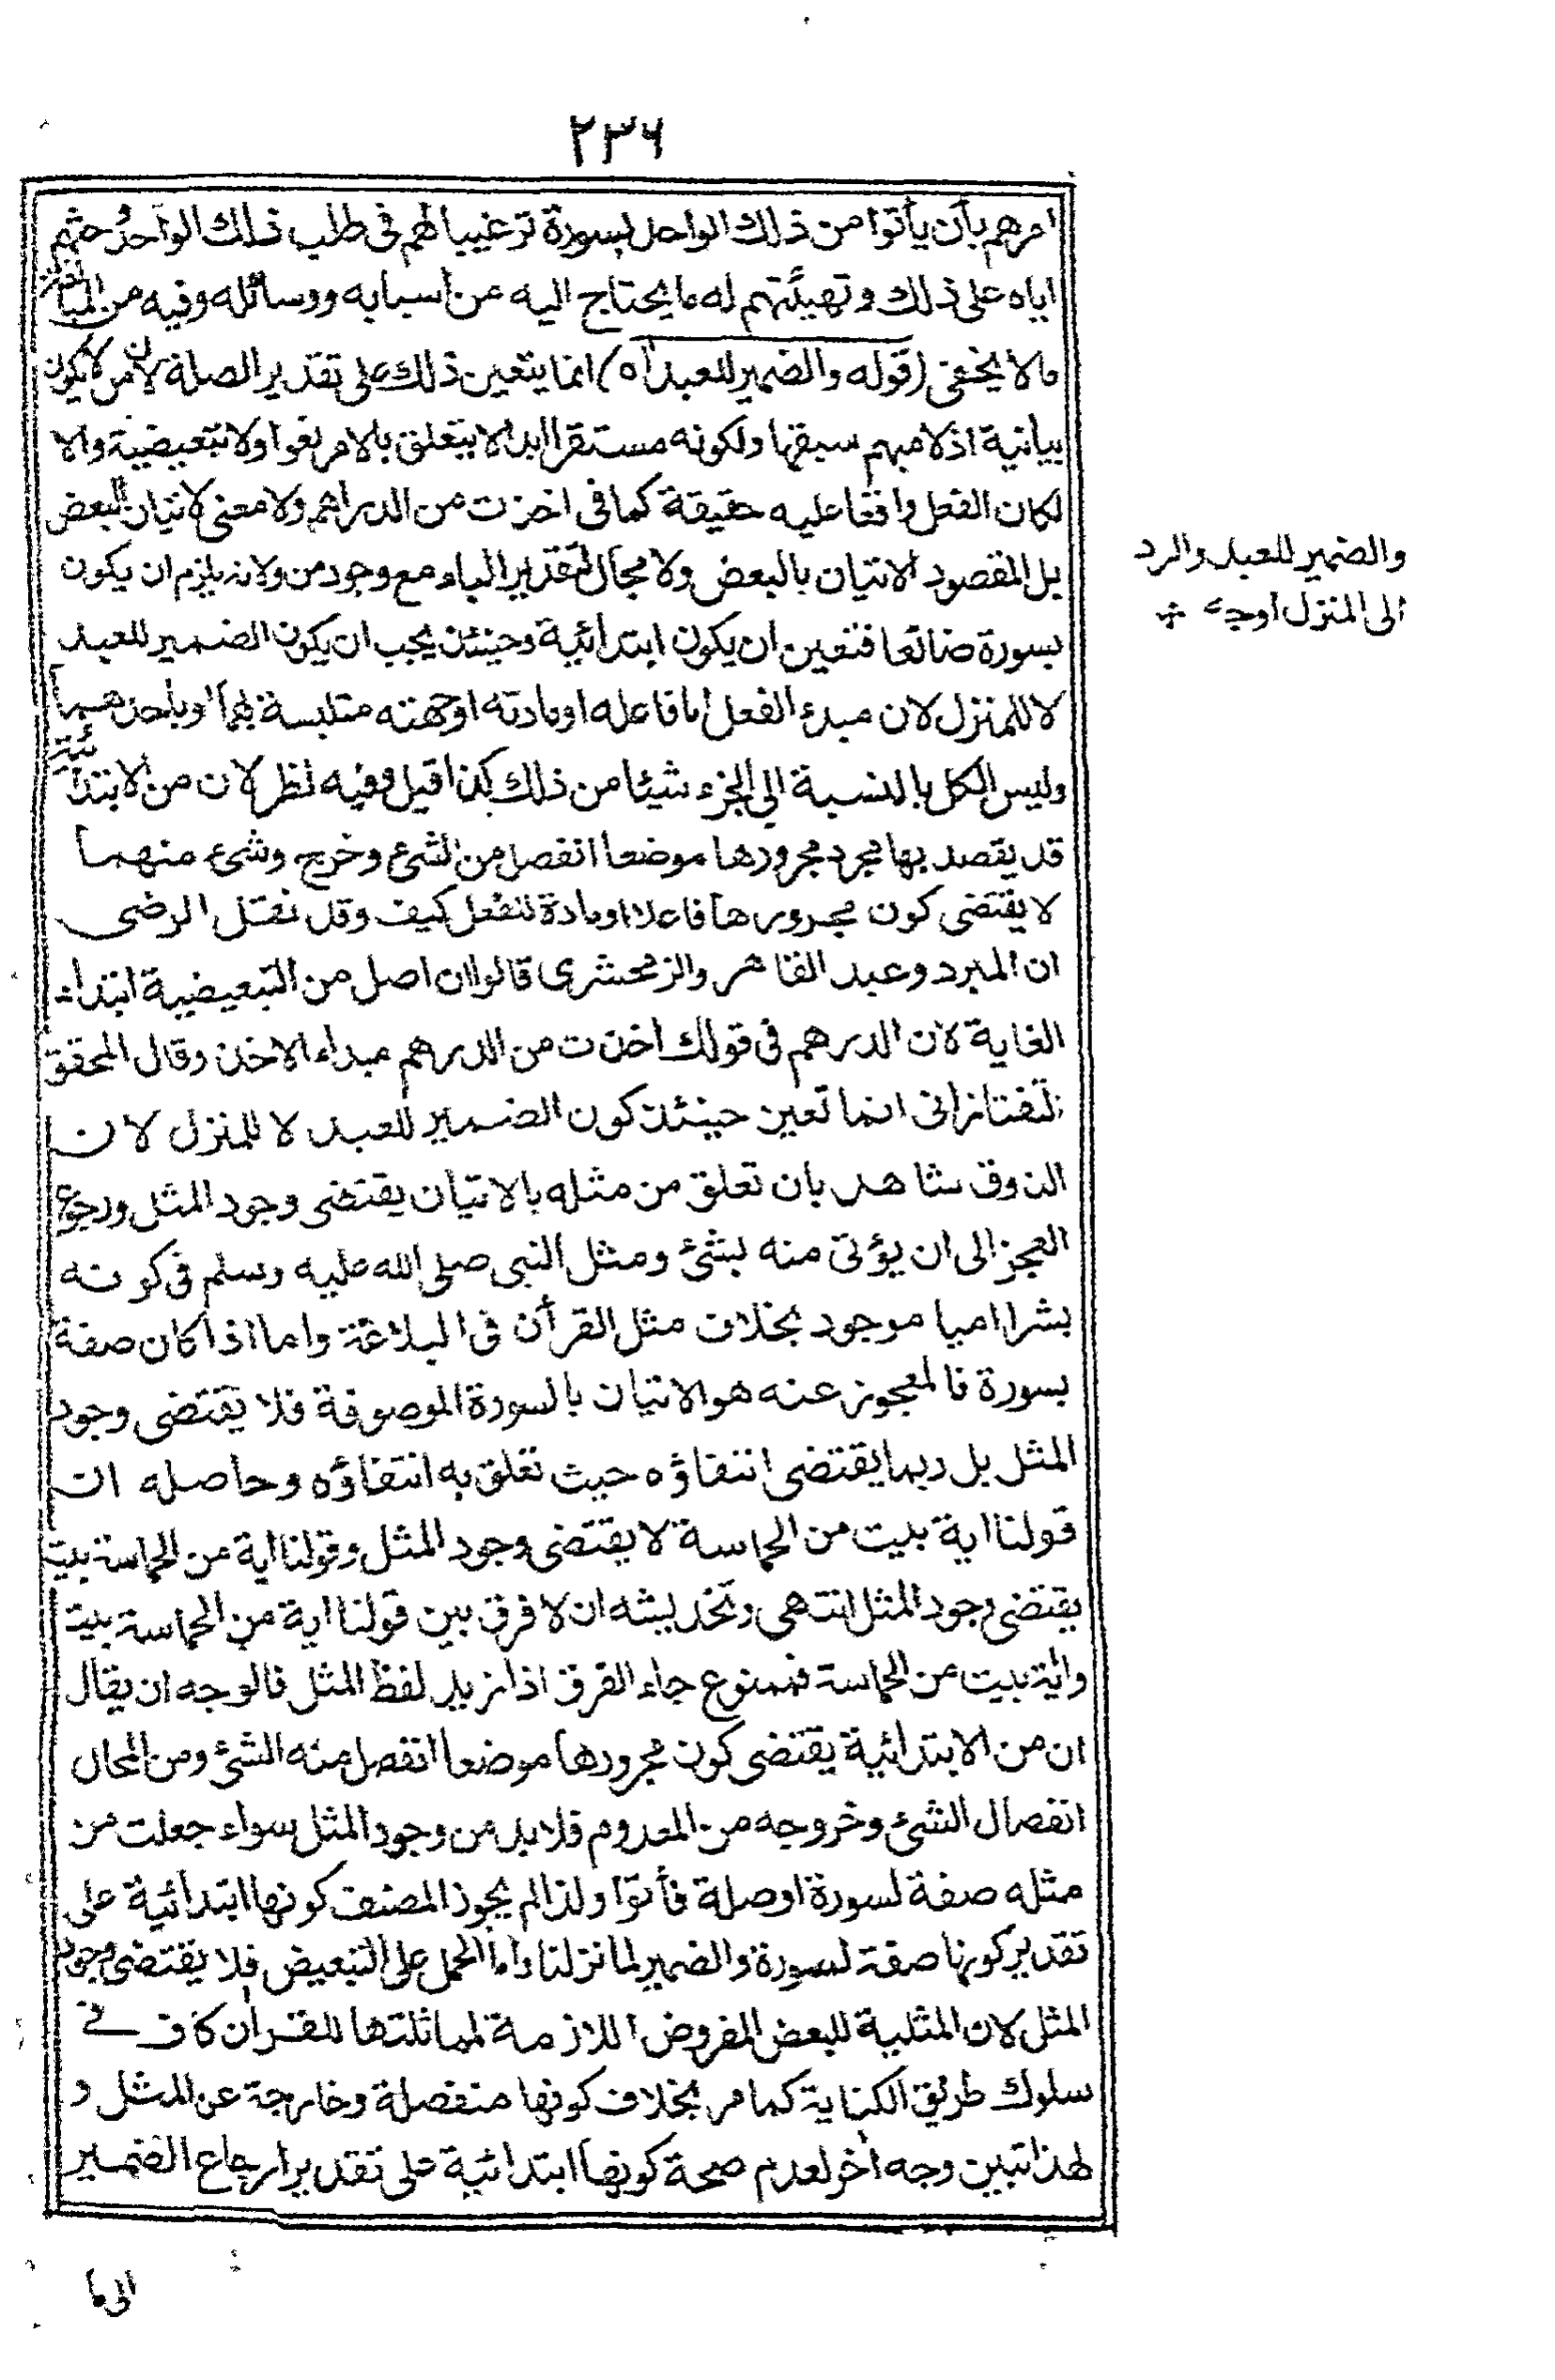 ٢٣٦
امرهم بأن يأتوا من ذلك الواحد بسورة ترغيبا لهم فى طلب ذلك الواحد وحثهم
اياه على ذلك وتهيئتهم له ما يحتاج اليه من أسبابه ووسائله وفيه من المبالغة
ما لا يخفى (قوله والضمير للعبد اه) انما يتعين ذلك على تقدير الصلة لان من لا يكون
بيانية اذ لا مبهم سبقها ولكونه مستقرا ابدا لا يتعلق بالامر لغوا ولا تبعيضية والا
لكان الفعل واقعا عليه حقيقة كما فى اخذت من الدراهم ولا معنى لاتيان البعض
بل المقصود الاتيان بالبعض ولا مجال لتقدير الباء مع وجود من ولانه يلزم ان يكون
بسورة ضائعا فتعين ان يكون ابتدائية وحينئذ يجب ان يكون الضمير للعبد
لا للمنزل لان مبدء الفعل اما فاعله او مادته او جهته متلبسة بهما او باحدهما
وليس الكل بالنسبة الى الجزء شيئا من ذلك كذا قيل وفيه نظر لان من الابتدائية
قد يقصد بها مجرد مجرورها موضعا انفصل من الشئ وخرج وشئ منهما
لا يقتضى كون مجرورها فاعلا او مادة للفعل كيف وقد نقل الرضى
ان المبرد وعبد القاهر والزمخشرى قالوا ان اصل من التبعيضية ابتداء
الغاية لان الدرهم فى قولك اخذت من الدرهم مبداء الاخذ وقال المحقق
التفتازانى انما تعين حينئذ كون الضمير للعبد لا للمنزل لان
الذوق شاهد بان تعلق من مثله بالاتيان يقتضى وجود المثل ورجوع
العجز الى ان يؤتى منه بشئ ومثل النبى صلى الله عليه وسلم فى كونه
بشرا اميا موجود بخلاف مثل القرأن فى البلاغة واما اذا كان صفة
بسورة فالمعجوز عنه هو الاتيان بالسورة الموصوفة فلا يقتضى وجود
المثل بل ربما يقتضى انتفاؤه حيث تعلق به انتفاؤه وحاصله ان
قولنا اية بيت من الحماسة لا يقتضى وجود المثل وقولنا اية من الحماسة ببيت
يقتضى وجود المثل انتهى وتخديشه ان لا فرق بين قولنا اية من الحماسة ببيت
واية ببيت من الحماسة فممنوع جاء الفرق اذا زيد لفظ المثل فالوجه ان يقال
ان من الابتدائية يقتضى كون مجرورها موضعا انفصل منه الشئ ومن المحال
انفصال الشئ وخروجه من المعدوم فلا بد من وجود المثل سواء جعلت من
مثله صفة لسورة او صلة فأتوا ولذا لم يجوز المصنف كونها ابتدائية على
تقدير كونها صفة لسورة والضمير لما نزلنا واما الحمل على التبعيض فلا يقتضى وجود
المثل لان المثلية للبعض المفروض اللازمة لمماثلتها للقرأن كاف فى
سلوك طريق الكناية كما مر بخلاف كونها منفصلة وخارجة عن المثل و
لهذا تبين وجه اخر لعدم صحة كونها ابتدائية على تقدير ارجاع الضمير
الى ما
والضمير للعبد والرد
الى المنزل اوجه